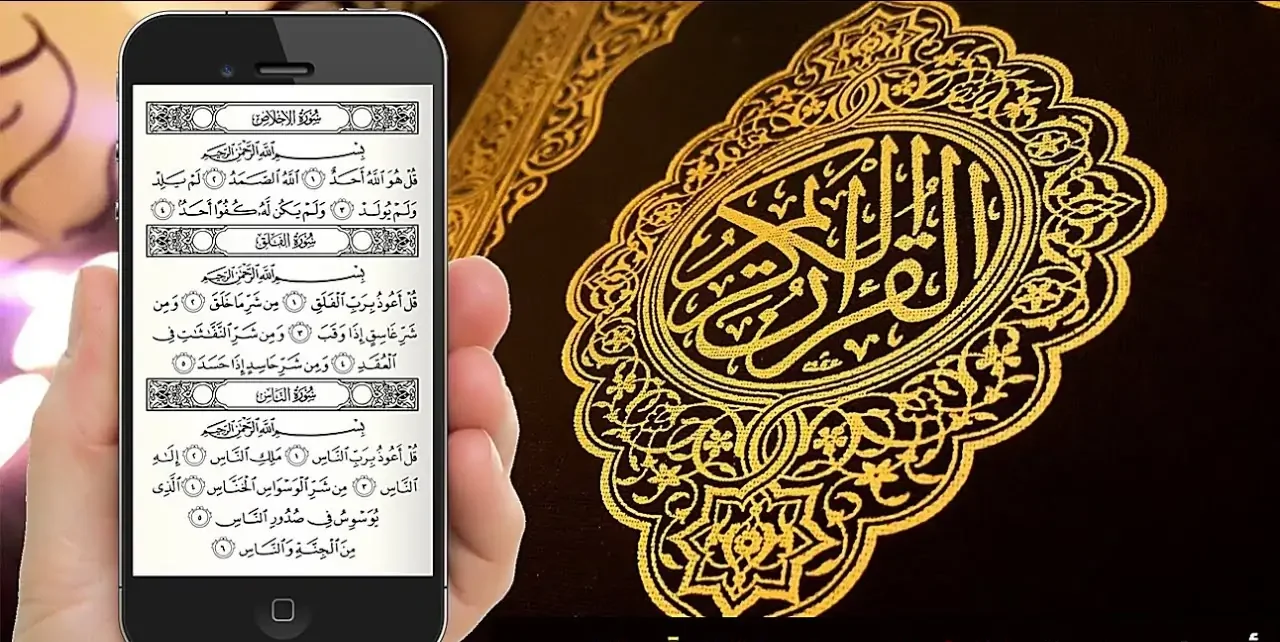 سُورَةُ الإِخْلَاصِ
بِسْمِ ٱللَّهِ ٱلرَّحْمَٰنِ ٱلرَّحِيمِ
قُلْ هُوَ ٱللَّهُ أَحَدٌ ١ ٱللَّهُ ٱلصَّمَدُ ٢ لَمْ يَلِدْ
وَلَمْ يُولَدْ ٣ وَلَمْ يَكُن لَّهُۥ كُفُوًا أَحَدٌۢ ٤
سُورَةُ الْفَلَقِ
بِسْمِ ٱللَّهِ ٱلرَّحْمَٰنِ ٱلرَّحِيمِ
قُلْ أَعُوذُ بِرَبِّ ٱلْفَلَقِ ١ مِن شَرِّ مَا خَلَقَ ٢ وَمِن
شَرِّ غَاسِقٍ إِذَا وَقَبَ ٣ وَمِن شَرِّ ٱلنَّفَّٰثَٰتِ فِي
ٱلْعُقَدِ ٤ وَمِن شَرِّ حَاسِدٍ إِذَا حَسَدَ ٥
سُورَةُ النَّاسِ
بِسْمِ ٱللَّهِ ٱلرَّحْمَٰنِ ٱلرَّحِيمِ
قُلْ أَعُوذُ بِرَبِّ ٱلنَّاسِ ١ مَلِكِ ٱلنَّاسِ ٢ إِلَٰهِ
ٱلنَّاسِ ٣ مِن شَرِّ ٱلْوَسْوَاسِ ٱلْخَنَّاسِ ٤ ٱلَّذِي
يُوَسْوِسُ فِي صُدُورِ ٱلنَّاسِ ٥
مِنَ ٱلْجِنَّةِ وَٱلنَّاسِ ٦
القرآن الكريم